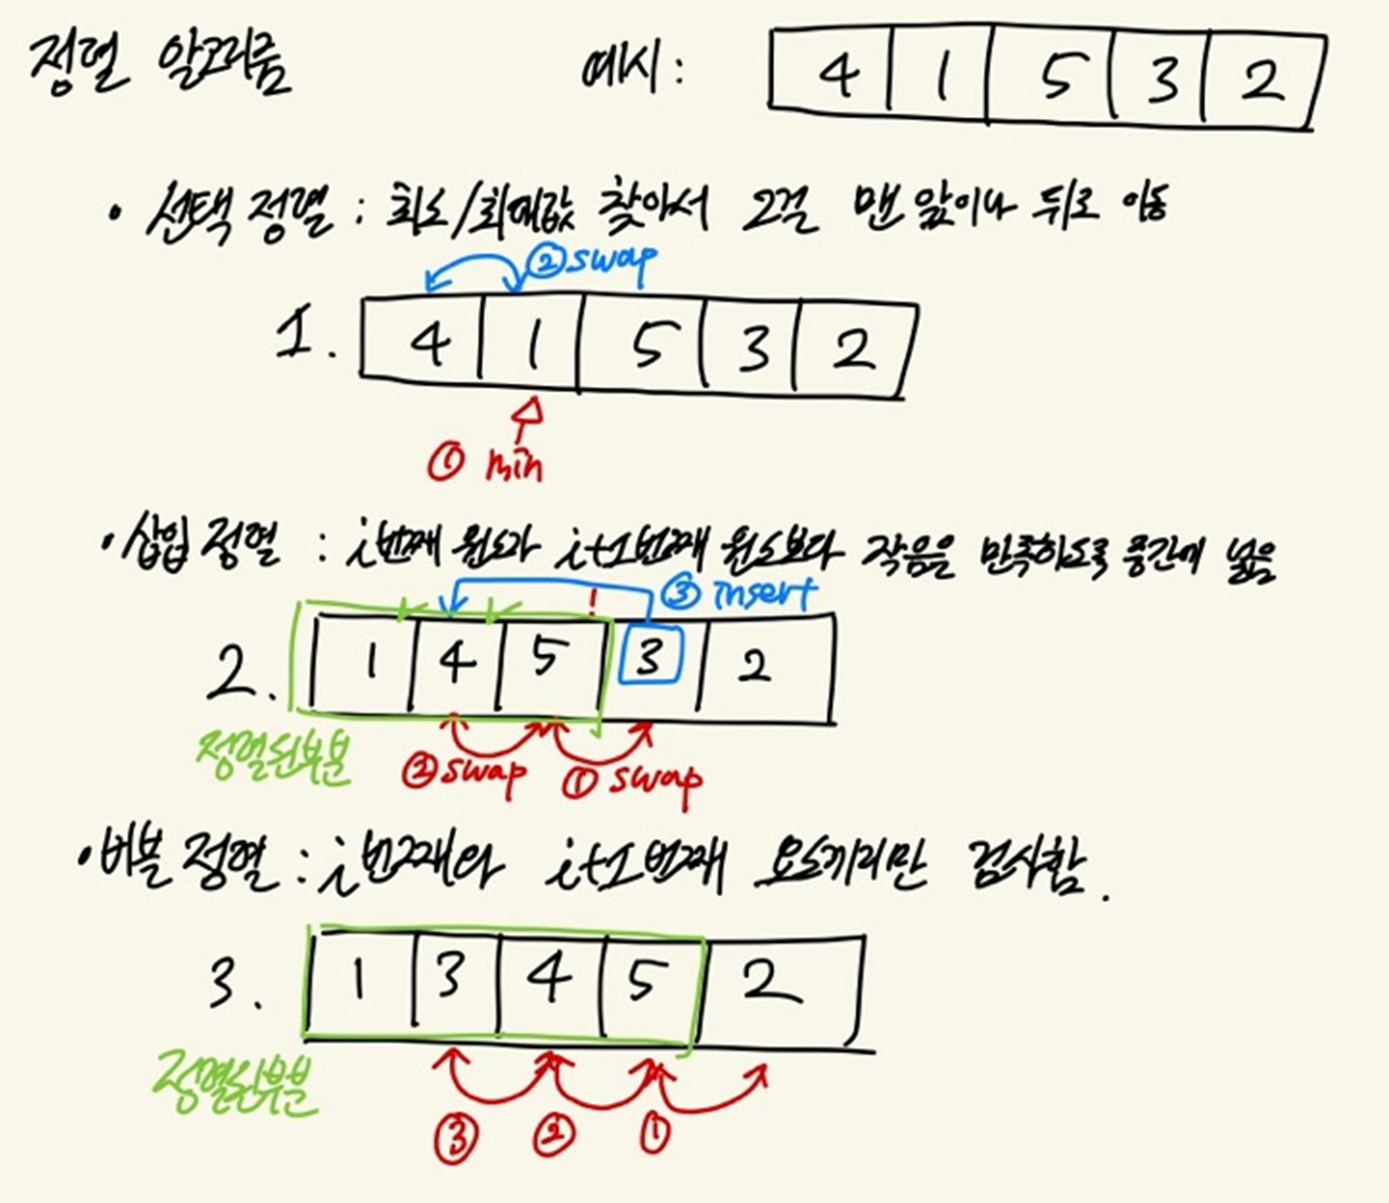 정렬 알고리즘 예시: 4 1 5 3 2
• 선택 정렬 : 최소/최대값 찾아서 그걸 맨 앞이나 뒤로 이동
② swap
1. 4 1 5 3 2
① min
• 삽입 정렬 : i번째 원소가 i+1번째 원소보다 작음을 만족하도록 중간에 넣음
! ③ insert
2. 1 4 5 3 2
정렬된부분 ② swap ① swap
• 버블 정렬 : i번째와 i+1번째 요소끼리만 검사함.
3. 1 3 4 5 2
정렬된부분
③ ② ①